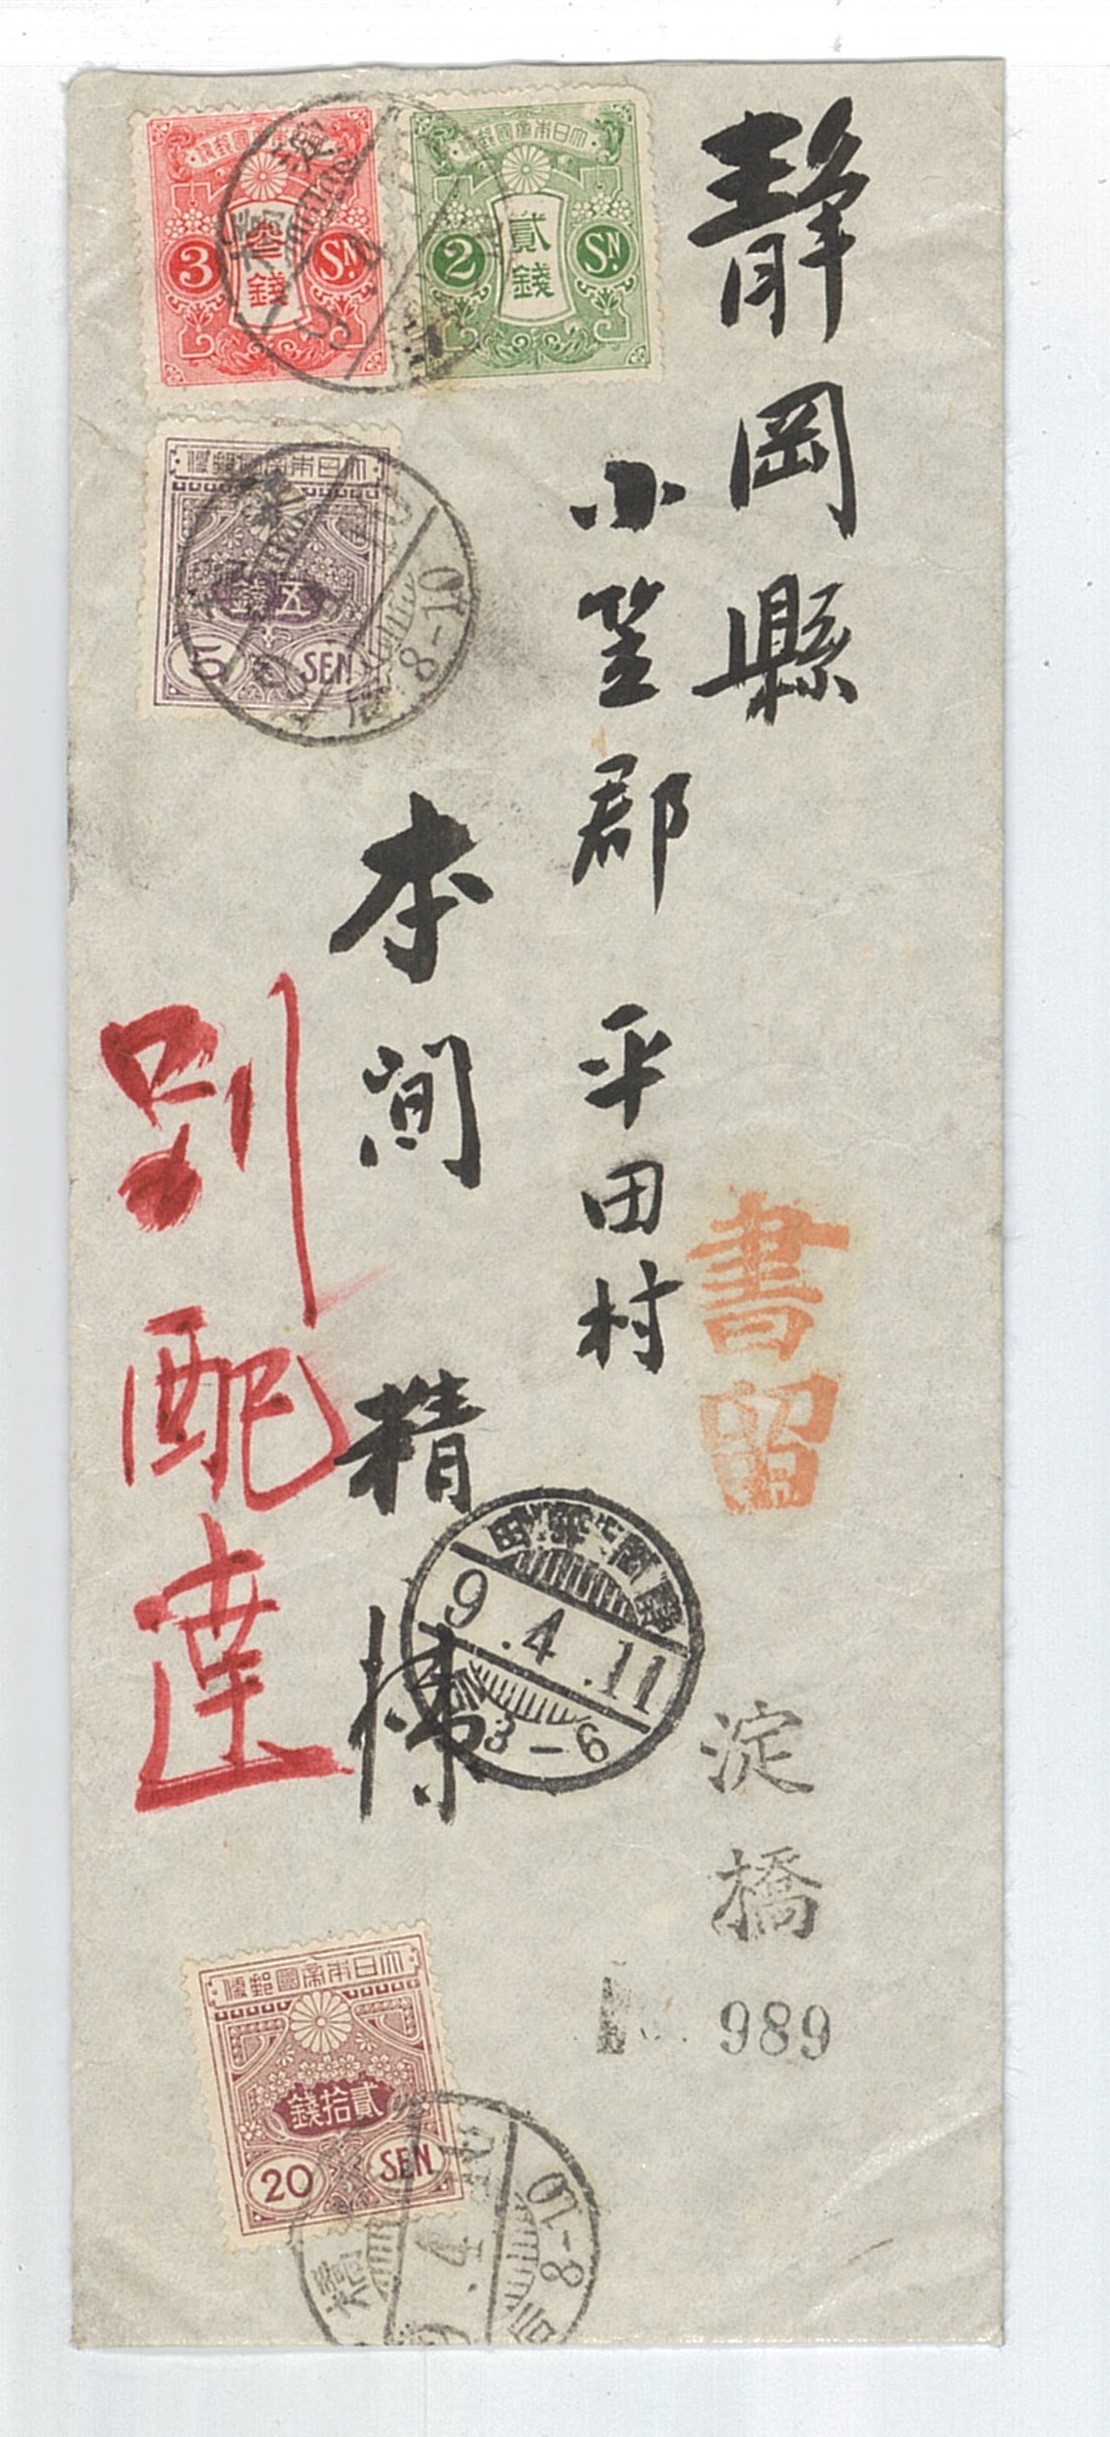 静岡縣
小笠郡平田村
本間精様
別配達
書留
淀橋
989
大日本帝國郵便
参錢
3 SN.
大日本帝國郵便
貳錢
2 SN.
大日本帝國郵便
五錢
5 SEN
8-10
9.4.11
3-6
大日本帝國郵便
貳拾錢
20 SEN
橋
9.4
8-10